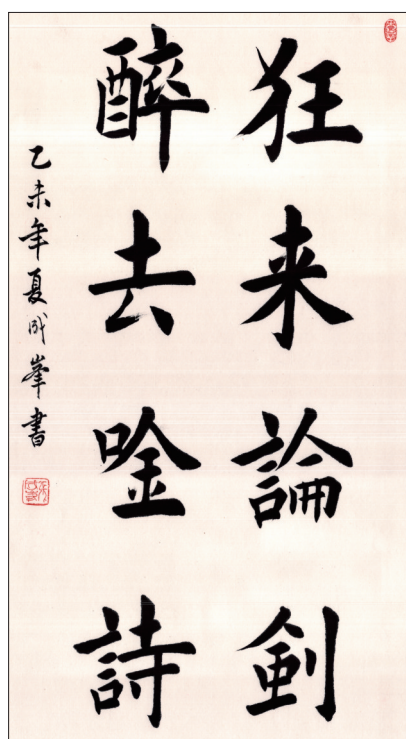 狂来論劍
醉去唫詩
乙未年夏成峯書